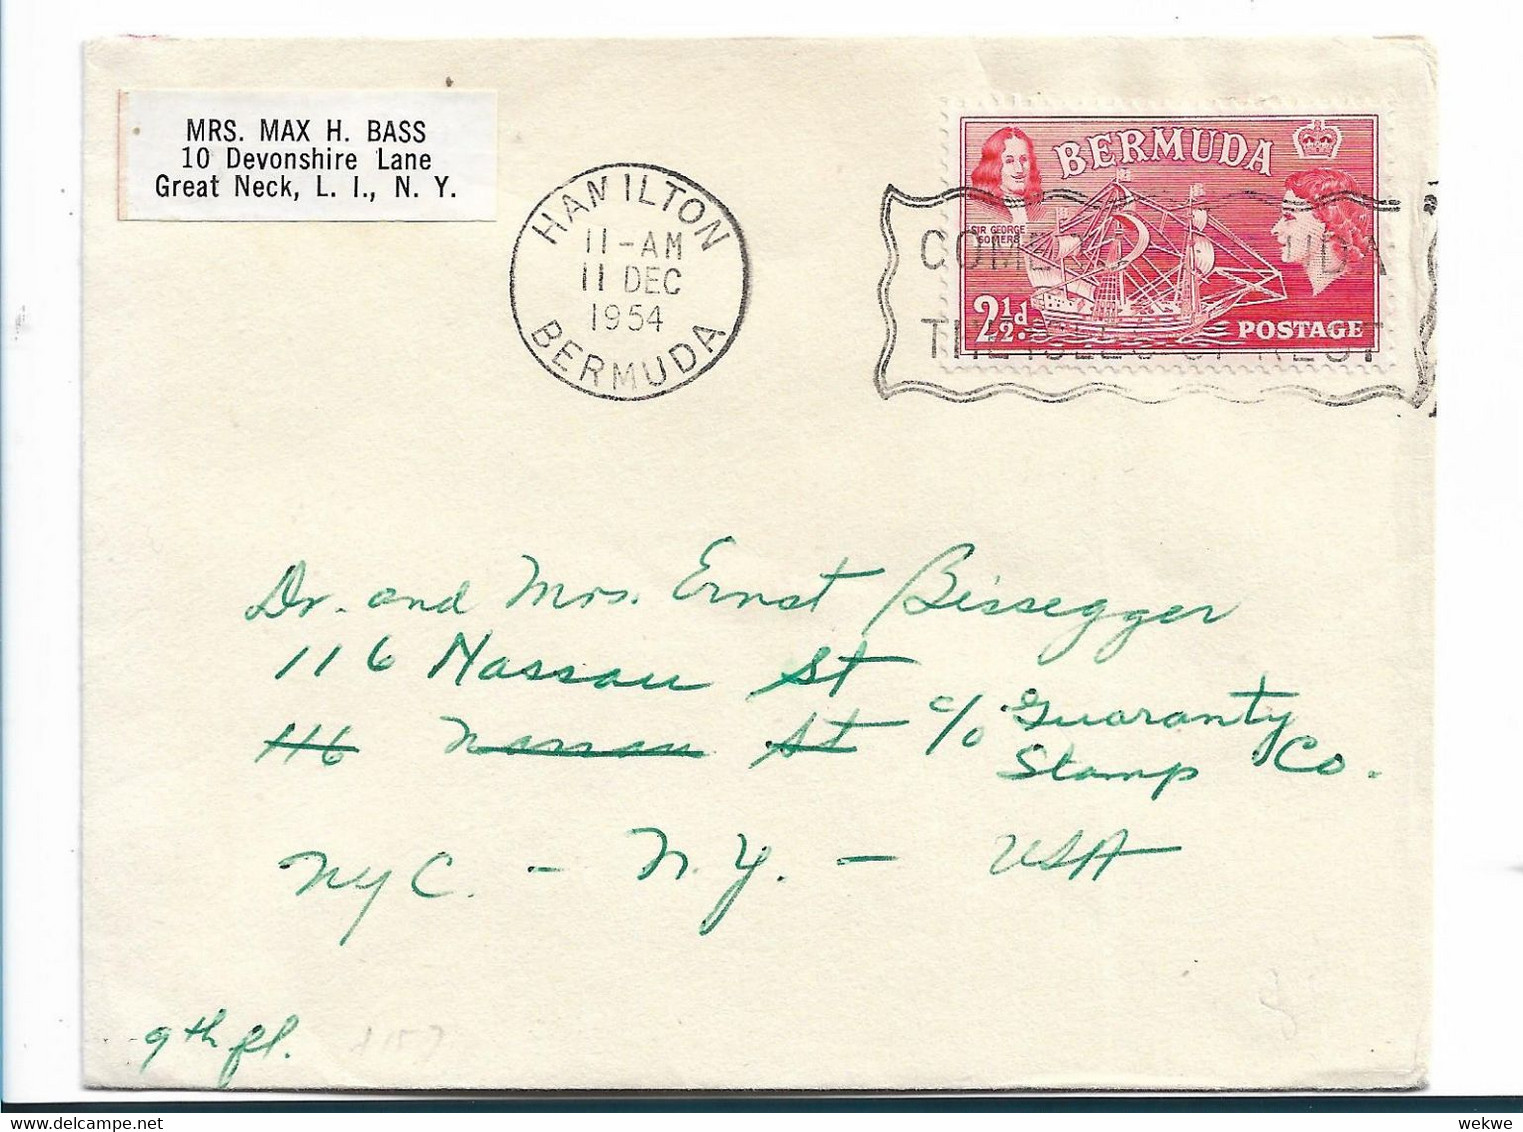 MRS. MAX H. BASS
10 Devonshire Lane
Great Neck, L. I., N. Y.
HAMILTON
11-AM
11 DEC
1954
BERMUDA
BERMUDA
SIR GEORGE
SOMERS
2½d.
POSTAGE
COME TO BERMUDA
THE ISLES OF REST
Dr. and Mrs. Ernst Bissegger
116 Nassau St
116 Nassau St c/o Guaranty
Stamp Co.
NYC. - N.Y. - USA
9th fl.
wekwe